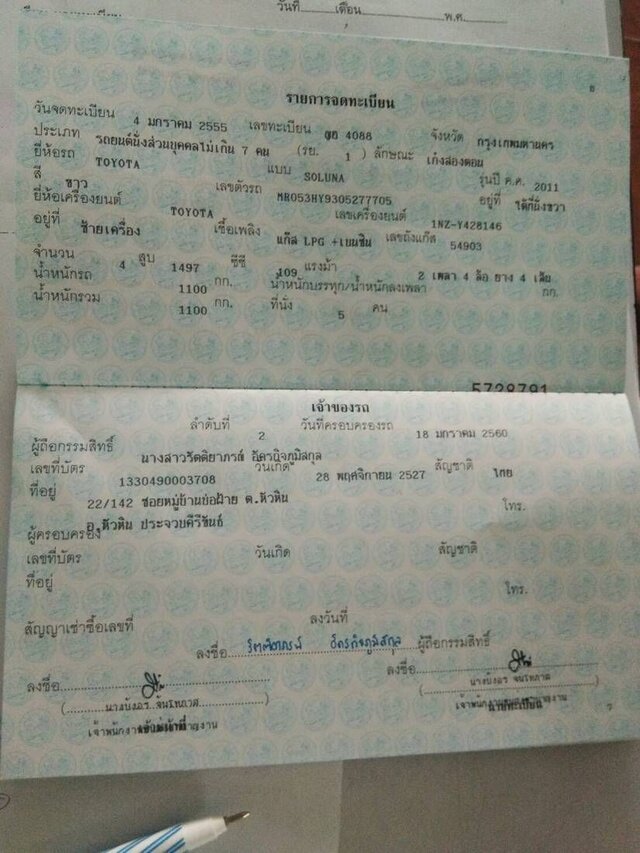 วันที่......เดือน..................พ.ศ.
รายการจดทะเบียน
วันจดทะเบียน 4 มกราคม 2555 เลขทะเบียน 4088 จังหวัด กรุงเทพมหานคร
ประเภท รถยนต์นั่งส่วนบุคคลไม่เกิน 7 คน (รย. 1 ) ลักษณะ เก๋งสองตอน
ยี่ห้อรถ TOYOTA แบบ SOLUNA รุ่นปี ค.ศ. 2011
สี ขาว เลขตัวรถ MR053HY9305277705 อยู่ที่ ใต้ที่นั่งขวา
ยี่ห้อเครื่องยนต์ TOYOTA เลขเครื่องยนต์ 1NZ-Y428146
อยู่ที่ ซ้ายเครื่อง เชื้อเพลิง แก๊ส LPG +เบนซิน เลขถังแก๊ส 54903
จำนวน 4 สูบ 1497 ซีซี 109 แรงม้า 2 เพลา 4 ล้อ ยาง 4 เส้น
น้ำหนักรถ 1100 กก. น้ำหนักบรรทุก/น้ำหนักลงเพลา กก.
น้ำหนักรวม 1100 กก. ที่นั่ง 5 คน
5728791
เจ้าของรถ
ลำดับที่ 2 วันที่ครอบครองรถ 18 มกราคม 2560
ผู้ถือกรรมสิทธิ์ นางสาวรัตติยาภรณ์ อัครกิจภูมิสกุล
เลขที่บัตร 1330490003708 วันเกิด 28 พฤศจิกายน 2527 สัญชาติ ไทย
ที่อยู่ 22/142 ซอยหมู่บ้านบ่อฝ้าย ต.หัวหิน โทร.
อ.หัวหิน ประจวบคีรีขันธ์
ผู้ครอบครอง
เลขที่บัตร วันเกิด สัญชาติ
ที่อยู่ โทร.
สัญญาเช่าซื้อเลขที่ ลงวันที่
ลงชื่อ รัตติยาภรณ์ อัครกิจภูมิสกุล ผู้ถือกรรมสิทธิ์
ลงชื่อ ลงชื่อ
(นางบังอร จันโทภาส) (นางบังอร จันโทภาส)
เจ้าหน้าที่ นายทะเบียน